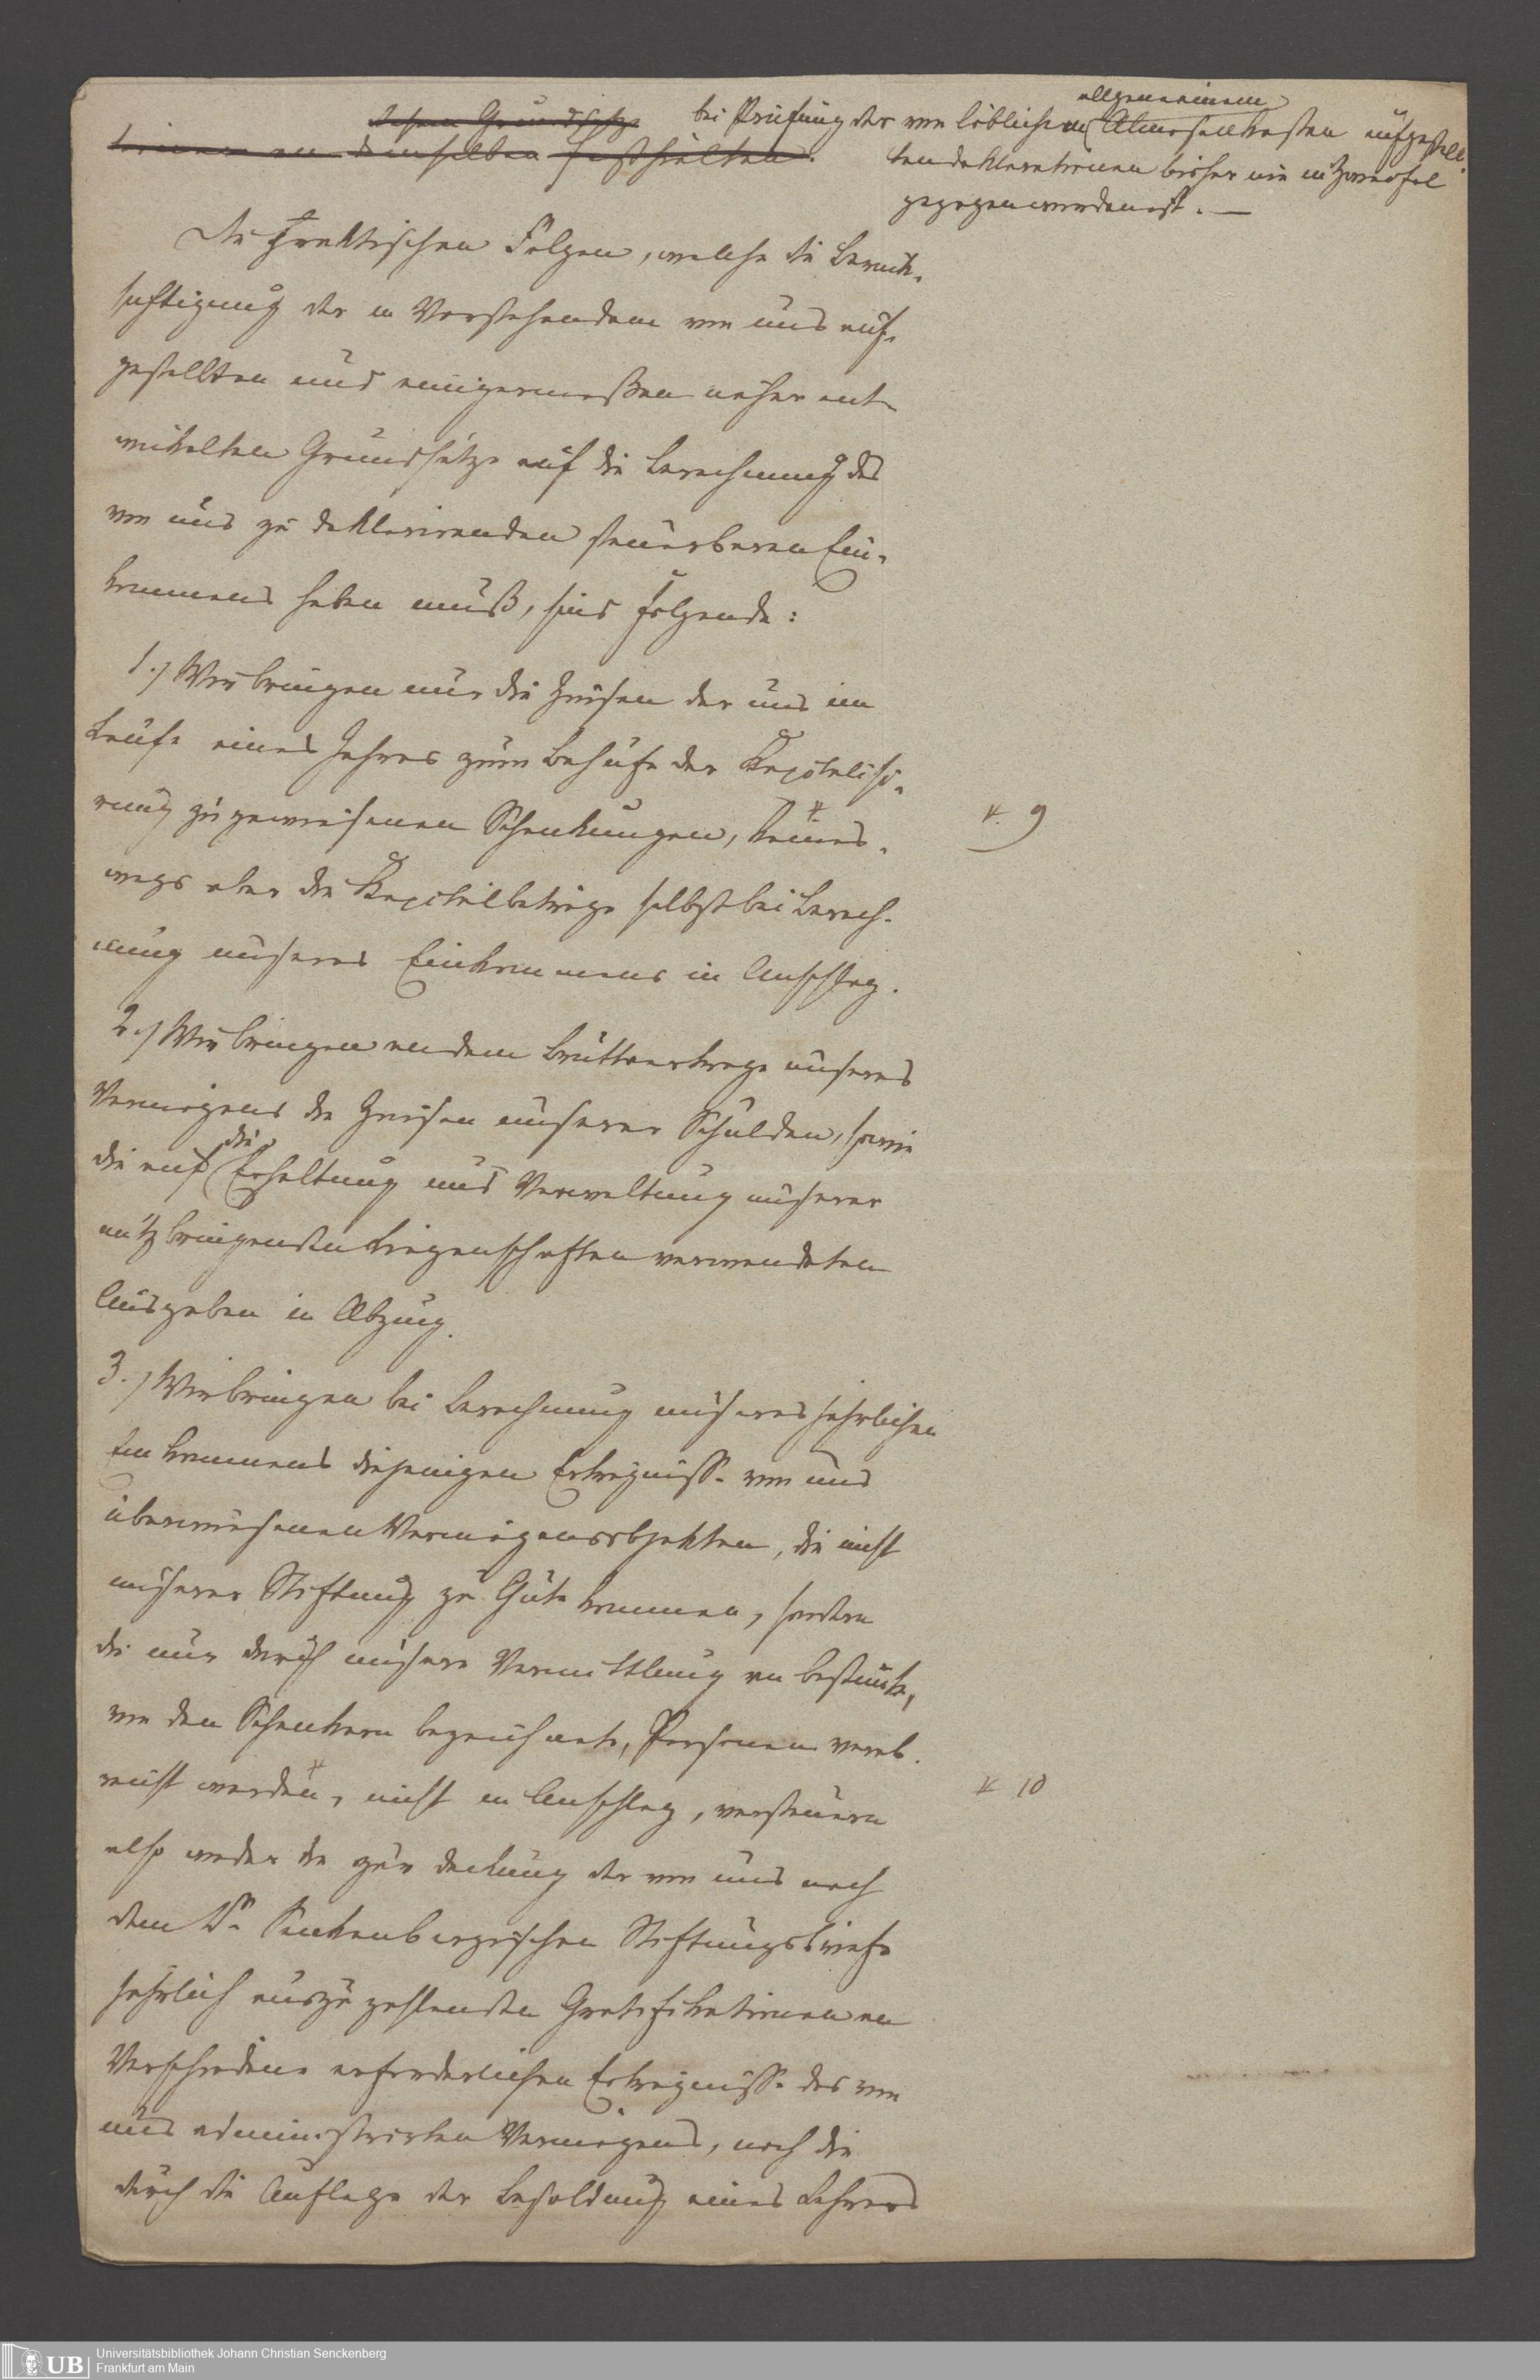 diesen Grundsatz bei Prüfung der von löblichem allgemeinem Almosenkasten aufgestell-
ten deklarationen bisher nie in Zweifel
an demselben festhielten.
gezogen worden ist. —
Die praktischen Folgen, welche die Berück-
sichtigung der in Vorstehendem von uns auf-
gestellten und einigermaßen näher ent-
wickelten Grundsätze auf die Berechnung des
von uns zu deklarirenden steuerbaren Ein-
kommens haben muß, sind folgende:
1.) Wir bringen nur die Zinsen der uns im
Laufe eines Jahres zum Behufe der Kapitalisi-
rung zugewiesenen Schenkungen, keines-
9
wegs aber die Kapitalbeträge selbst bei Berech-
nung unseres Einkommens in Anschlag.
2.) Wir bringen an dem Bruttoertrage unseres
Vermögens die Zinsen unserer Schulden, sowie
die auf die Erhaltung und Verwaltung unserer
nutzbringenden Liegenschaften verwendeten
Ausgaben in Abzug.
3.) Wir bringen bei Berechnung unseres jährlichen
Einkommens diejenigen Erträgnisse von uns
überwiesenen Vermögensobjekten, die nicht
unserer Stiftung zu Gute kommen, sondern
die nur durch unsere Vermittlung an bestimte,
von den Schenkern bezeichnete, Personen verab-
reicht werden, nicht in Anschlag, versteuern
10
also weder die zur Deckung der von uns nach
dem Dr. Senkenbergischen Stiftungsbriefe
jährlich auszuzahlenden Gratifikationen an
Verschiedene erforderlichen Erträgnisse des von
uns administrirten Vermögens, noch die
durch die Auflage der Besoldung eines Lehrers
UB Universitätsbibliothek Johann Christian Senckenberg
Frankfurt am Main